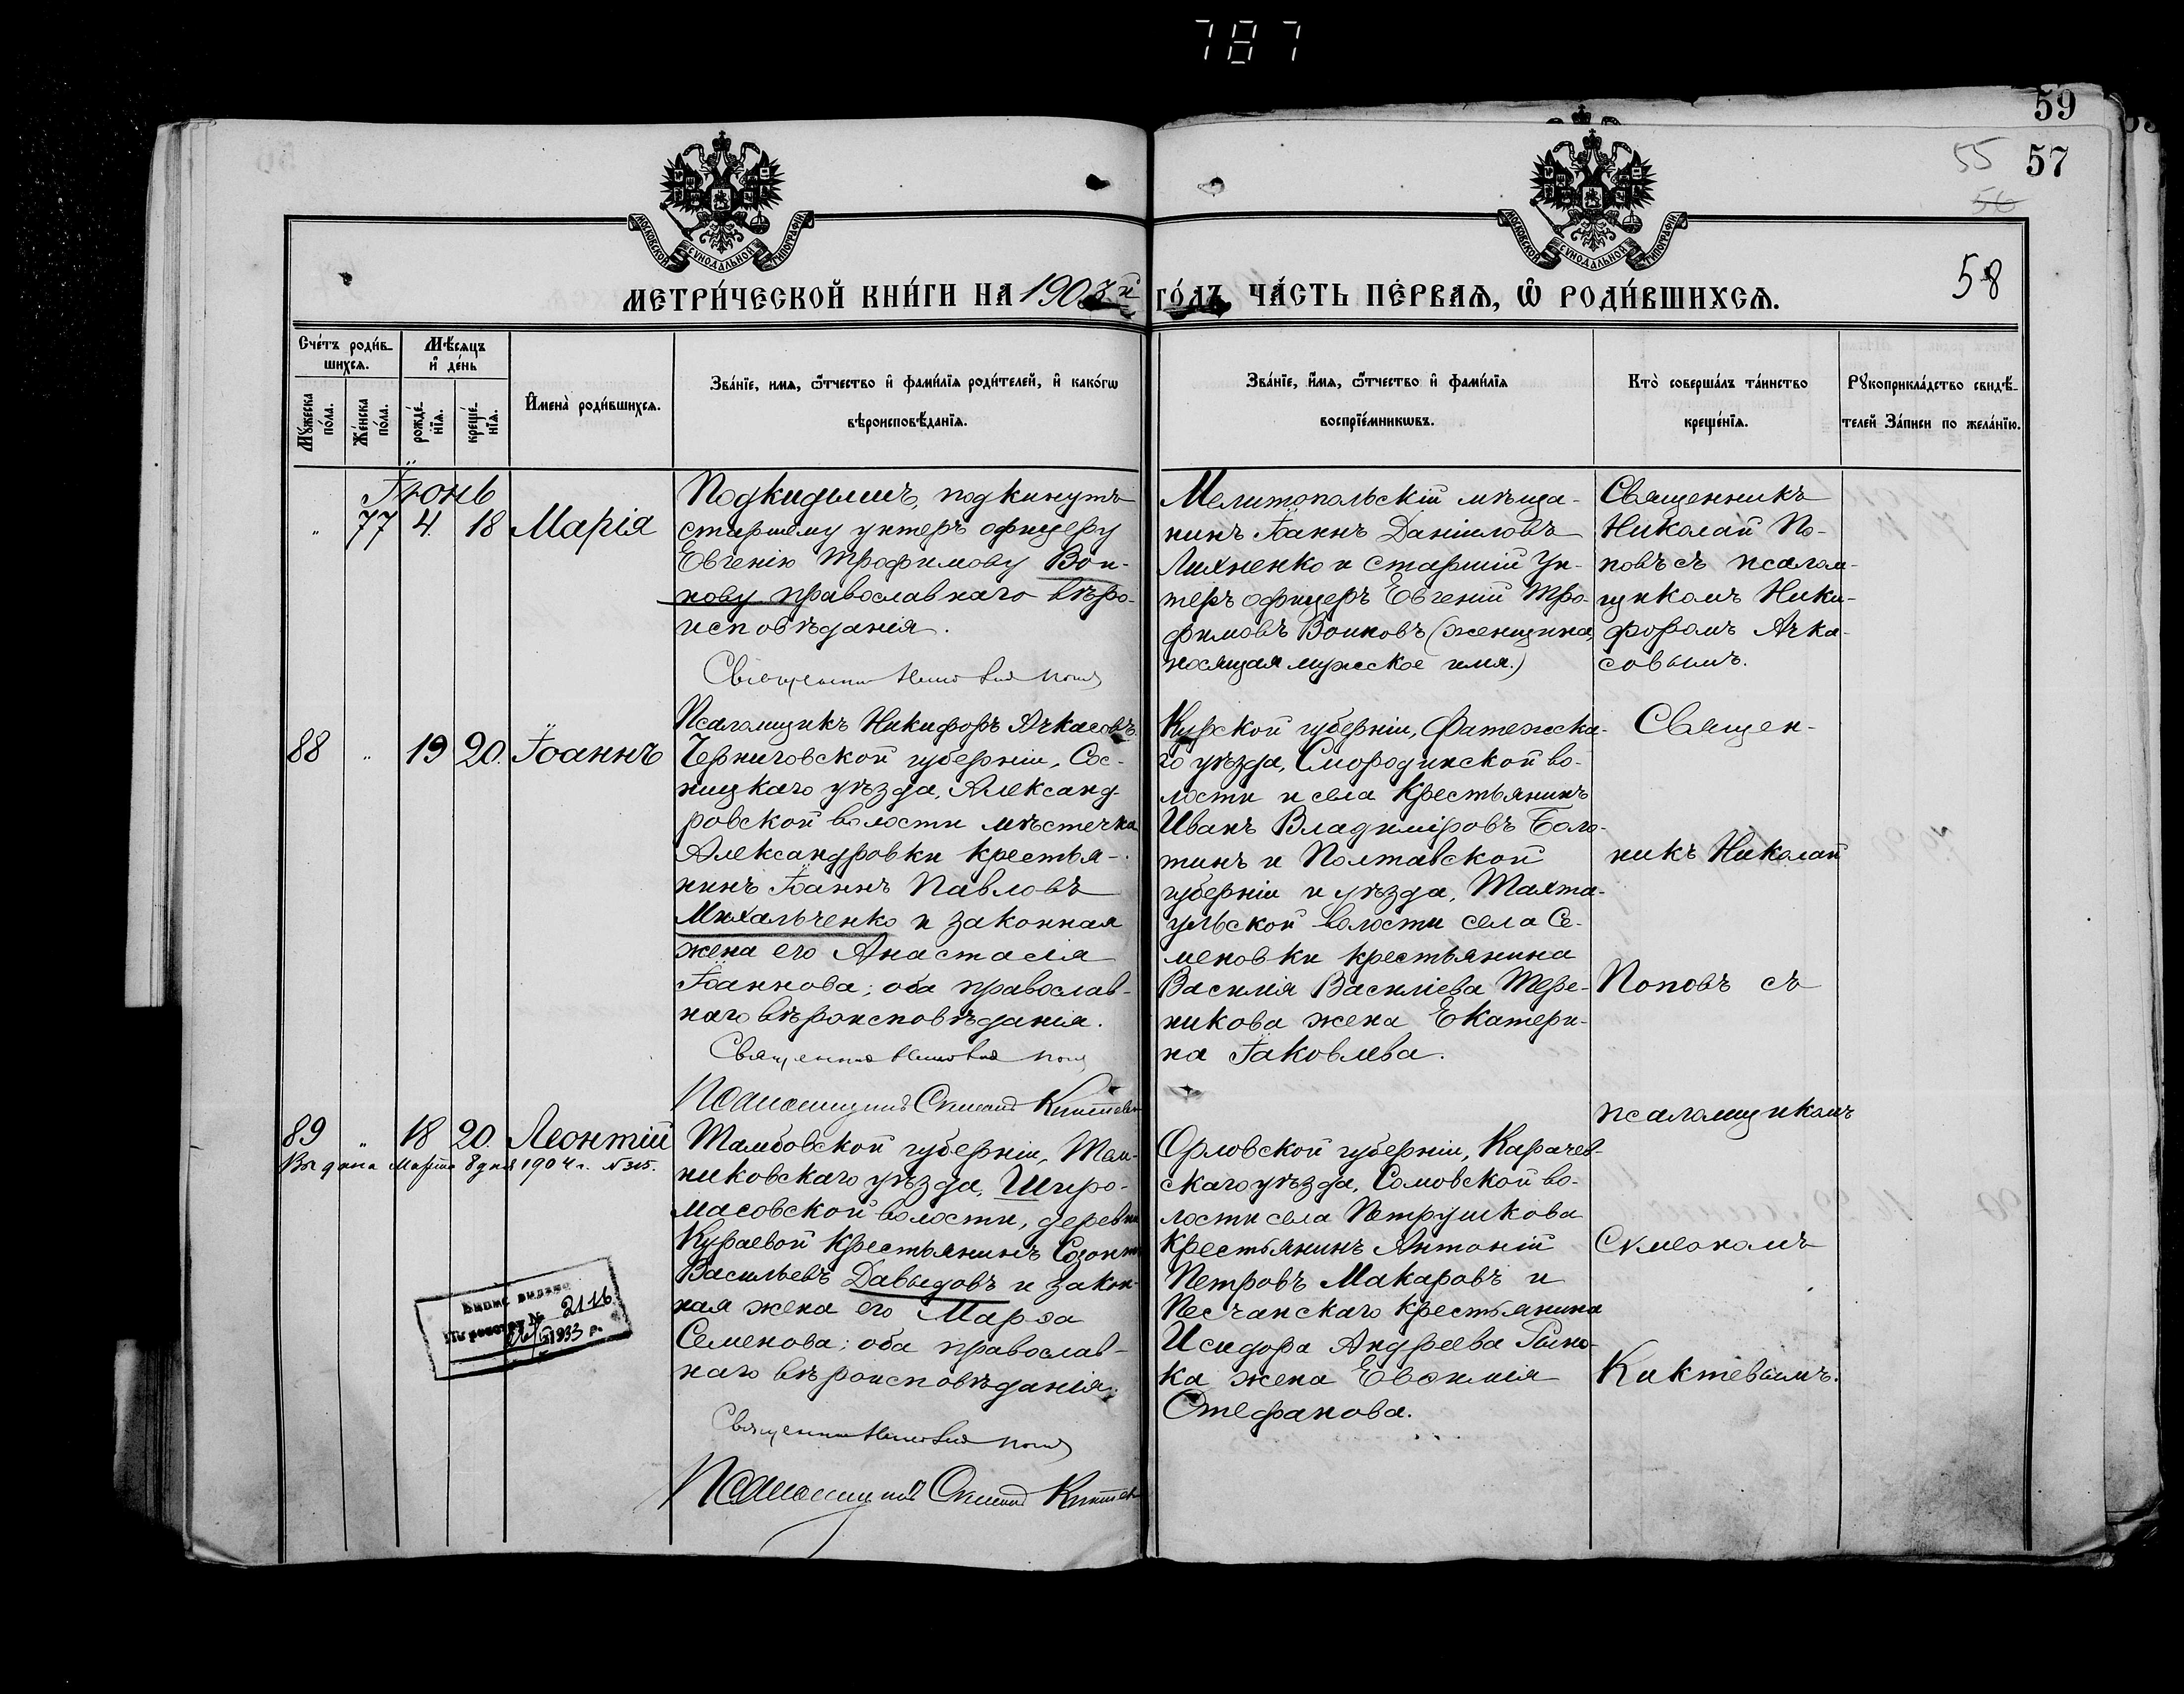 787
59
55
57
56
58
МОСКОВСКОЙ СѴНОДАЛЬНОЙ ТИПОГРАФІИ
МОСКОВСКОЙ СѴНОДАЛЬНОЙ ТИПОГРАФІИ
МЕТРИ́ЧЕСКОЙ КНИ́ГИ НА 1903й ГО́ДЪ, ЧА́СТЬ ПЕ́РВАѦ, Ѡ РОДИ́ВШИХСѦ.
Сче́тъ роди́в-
шихсѧ.
Мѣ́сѧцъ
и҆ де́нь
Мꙋ́жеска
по́ла.
Же́нска
по́ла.
рожде́-
нїѧ.
креще́-
нїѧ.
И҆мена̀ роди́вшихсѧ.
Зва́нїе, имѧ, ѻ҆́тчество и҆ фами́лїѧ роди́телей, и҆ како́гѡ
вѣроисповѣ́данїѧ.
Зва́нїе, и҆́мѧ, ѻ҆́тчество и҆ фами́лїѧ
воспрїе́мникѡвъ.
Кто̀ соверша́лъ та́инство
креще́нїѧ.
Рꙋкоприкла́дство свидѣ́-
телей За́писи по жела́нїю.
Іюнь
" 77 4. 18 Марія
Подкидышъ, подкинутъ
старшему унтеръ офицеру
Евгенію Трофимову Вои-
нову православнаго вѣро-
исповѣданія.
Мелитопольскій мѣща-
нинъ Іоаннъ Даніиловъ
Лихненко и старшій Ун-
теръ офицеръ Евгеній Тро-
фимовъ Воиновъ (женщина,
носящая мужское имя.)
Священникъ
Николай По-
повъ съ псалом-
щикомъ Ники-
форомъ Ачка-
совымъ.
Псаломщикъ Никифоръ Ачкасовъ.
88 " 19 20. Іоаннъ
Черниговской губерніи, Сос-
ницкаго уѣзда, Александ-
ровской волости мѣстечка
Александровки крестья-
нинъ Іоаннъ Павловъ
Михальченко и законная
жена его Анастасія
Іоаннова; оба православ-
наго вѣроисповѣданія.
Курской губерніи, Фатежска-
го уѣзда, Смородинской во-
лости и села крестьянинъ
Иванъ Владиміровъ Боло-
тинъ и Полтавской
губерніи и уѣзда, Тахта-
ульской волости села Се-
меновки крестьянина
Василія Василіева Тере-
никова жена Екатери-
на Іаковлева.
Священ-
никъ Николай
Поповъ съ
псаломщикомъ
Симеономъ
Киктевымъ.
89 " 18 20. Леонтій
Выдана Марта 8 дня 1904 г. № 315.
Тамбовской губерніи, Тем-
никовскаго уѣзда, Широ-
масовской волости, деревни
Кураевой крестьянинъ Созонтъ
Васильевъ Давыдовъ и закон-
ная жена его Марѳа
Семенова; оба православ-
наго вѣроисповѣданія.
Орловской губерніи, Карачев-
скаго уѣзда, Сомовской во-
лости села Петрушкова
крестьянинъ Антоній
Петровъ Макаровъ и
Песчанскаго крестьянина
Исидора Андреева
жена Евѳимія
Стефанова.
2116
1933 р.